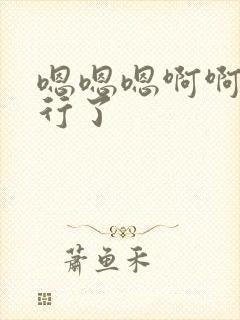 嗯嗯嗯啊啊
行了
蕭魚禾